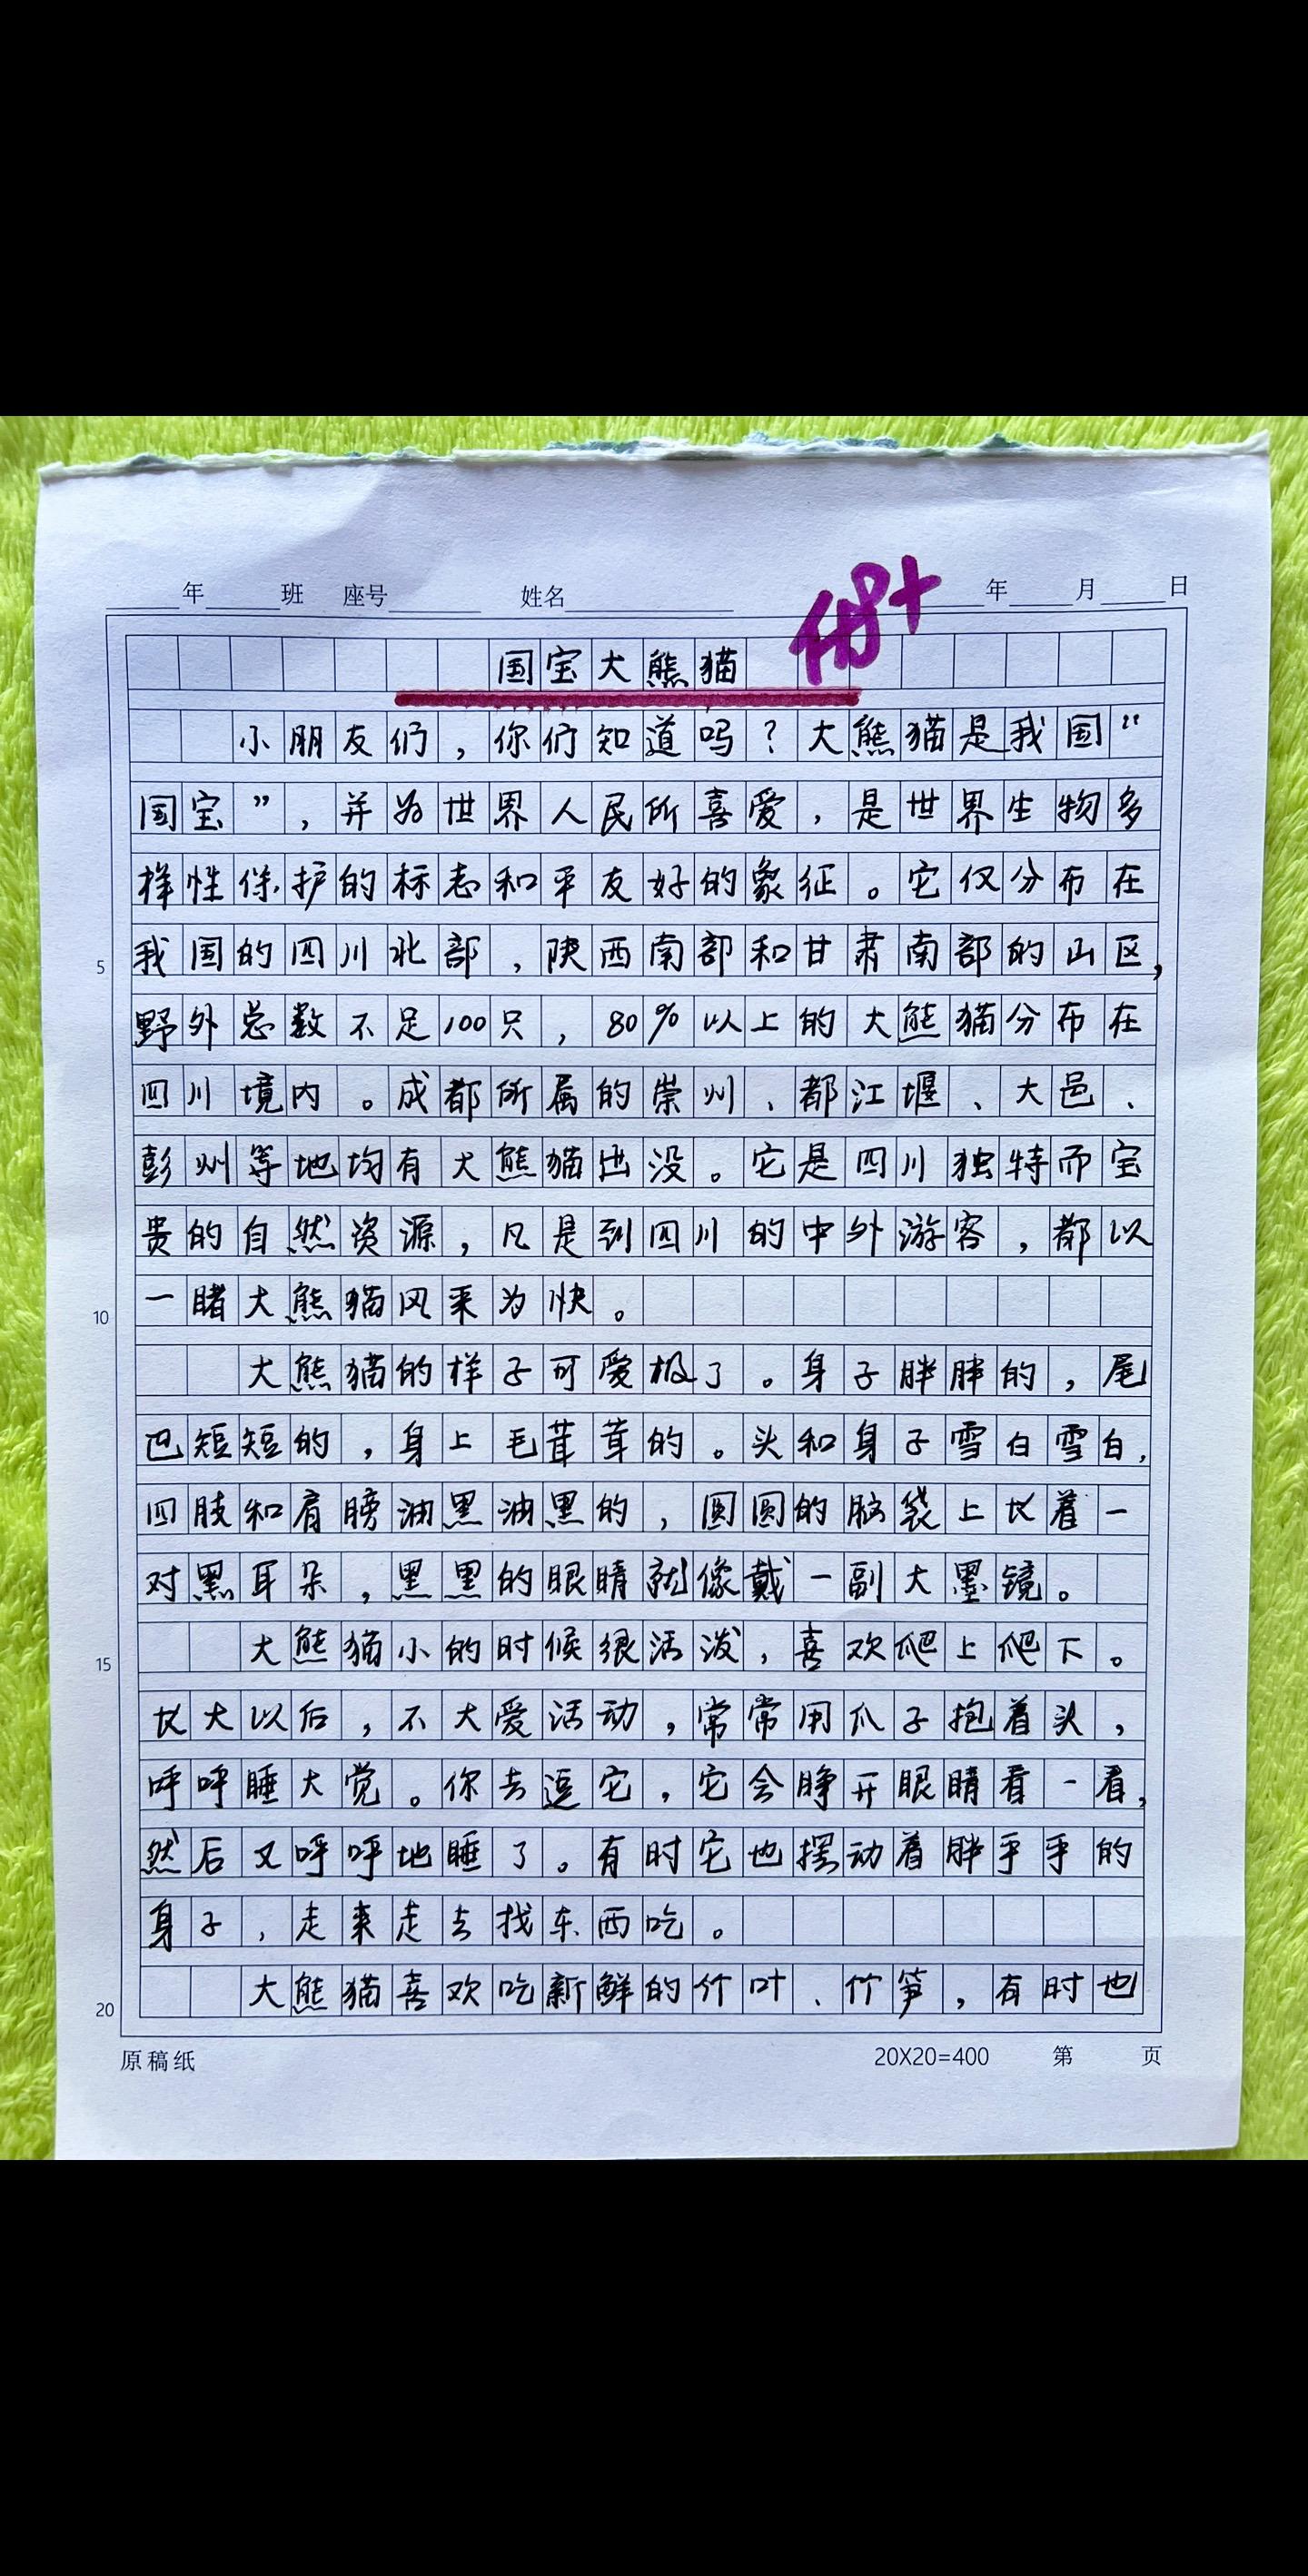 年 班 座号 姓名 年 月 日
国宝大熊猫
小朋友们，你们知道吗？大熊猫是我国“
国宝”，并为世界人民所喜爱，是世界生物多
样性保护的标志和平友好的象征。它仅分布在
5 我国的四川北部，陕西南部和甘肃南部的山区，
野外总数不足100只，80%以上的大熊猫分布在
四川境内。成都所属的崇州、都江堰、大邑、
彭州等地均有大熊猫出没。它是四川独特而宝
贵的自然资源，凡是到四川的中外游客，都以
10 一睹大熊猫风采为快。
大熊猫的样子可爱极了。身子胖胖的，尾
巴短短的，身上毛茸茸的。头和身子雪白雪白，
四肢和肩膀油黑油黑的，圆圆的脑袋上长着一
对黑耳朵，黑黑的眼睛就像戴一副大墨镜。
15 大熊猫小的时候很活泼，喜欢爬上爬下。
长大以后，不大爱活动，常常用爪子抱着头，
呼呼睡大觉。你去逗它，它会睁开眼睛看一看，
然后又呼呼地睡了。有时它也摆动着胖乎乎的
身子，走来走去找东西吃。
20 大熊猫喜欢吃新鲜的竹叶、竹笋，有时也
原稿纸 20X20=400 第 页